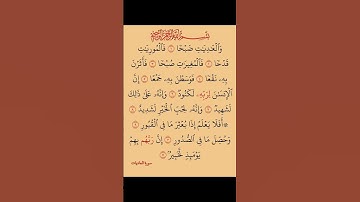 بِسْمِ اللَّهِ الرَّحْمَٰنِ الرَّحِيمِ
وَٱلْعَٰدِيَٰتِ ضَبْحًا ١ فَٱلْمُورِيَٰتِ
قَدْحًا ٢ فَٱلْمُغِيرَٰتِ صُبْحًا ٣ فَأَثَرْنَ
بِهِۦ نَقْعًا ٤ فَوَسَطْنَ بِهِۦ جَمْعًا ٥ إِنَّ
ٱلْإِنسَٰنَ لِرَبِّهِۦ لَكَنُودٌ ٦ وَإِنَّهُۥ عَلَىٰ ذَٰلِكَ
لَشَهِيدٌ ٧ وَإِنَّهُۥ لِحُبِّ ٱلْخَيْرِ لَشَدِيدٌ ٨
* أَفَلَا يَعْلَمُ إِذَا بُعْثِرَ مَا فِى ٱلْقُبُورِ ٩
وَحُصِّلَ مَا فِى ٱلصُّدُورِ ١٠ إِنَّ رَبَّهُم بِهِمْ
يَوْمَئِذٍ لَّخَبِيرٌۢ ١١
سورة العاديات